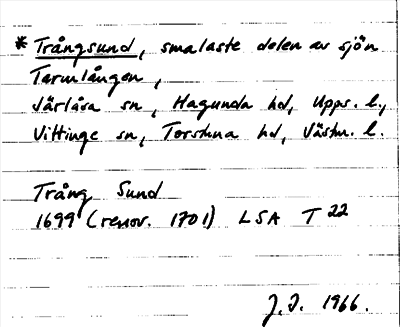 * Trångsund, smalaste delen av sjön
Tarmlången,
Järlåsa sn, Hagunda hd, Upps. l.,
Vittinge sn, Torstuna hd, Västm. l.
Trång Sund
1699 (renov. 1701) LSA T 22
J.I. 1966.